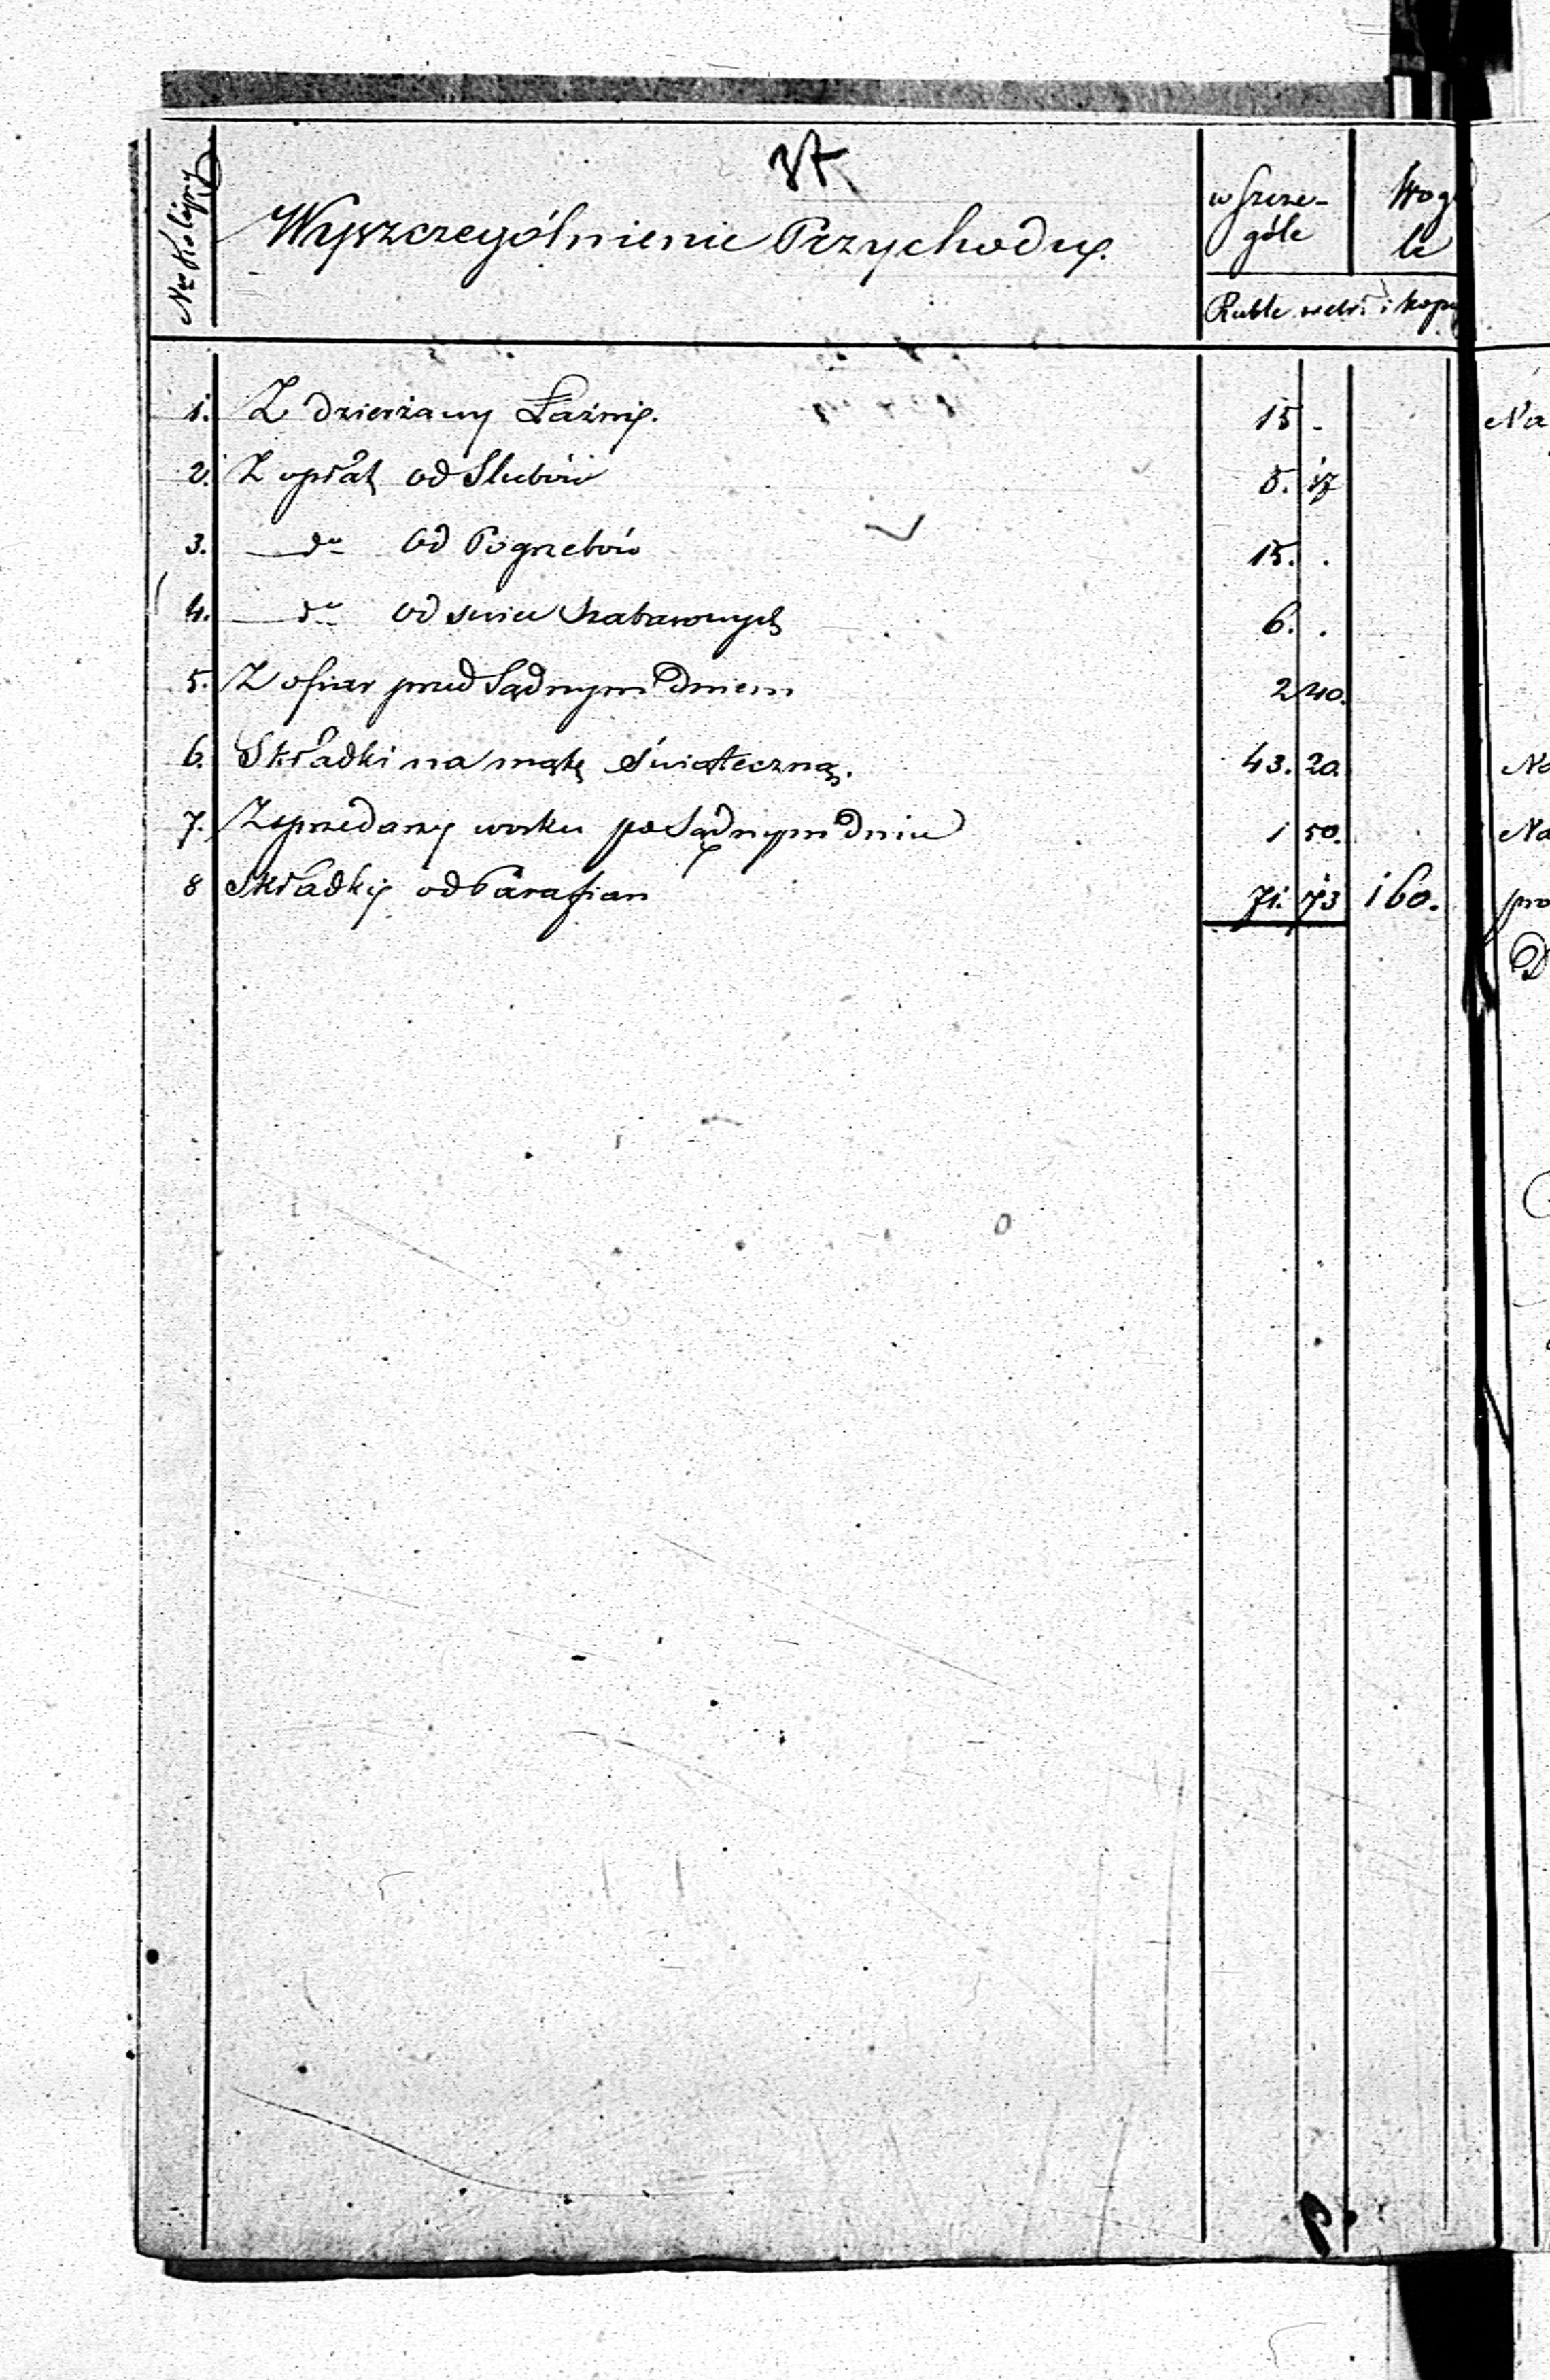 Nr Kolejny
Wyszczególnienie Przychodu.
w szcze-
góle
Wog
le
Ruble srebr: i kop
1. Z dzierżawy Łaźni. 15 -
2. Z opłat od Slubów 5. 17
3. do Od Pogrzebów 15. .
4. do od swiec szabasowych 6. .
5. Z ofiar przed Sądnym Dniem 2 40.
6. Składki na mąkę świąteczną. 43. 20
7. Z sprzedaży wosku po Sądnym Dniu 1 50.
8 Składki od Parafian 71. 73 160.
Na
Na
Na
pro